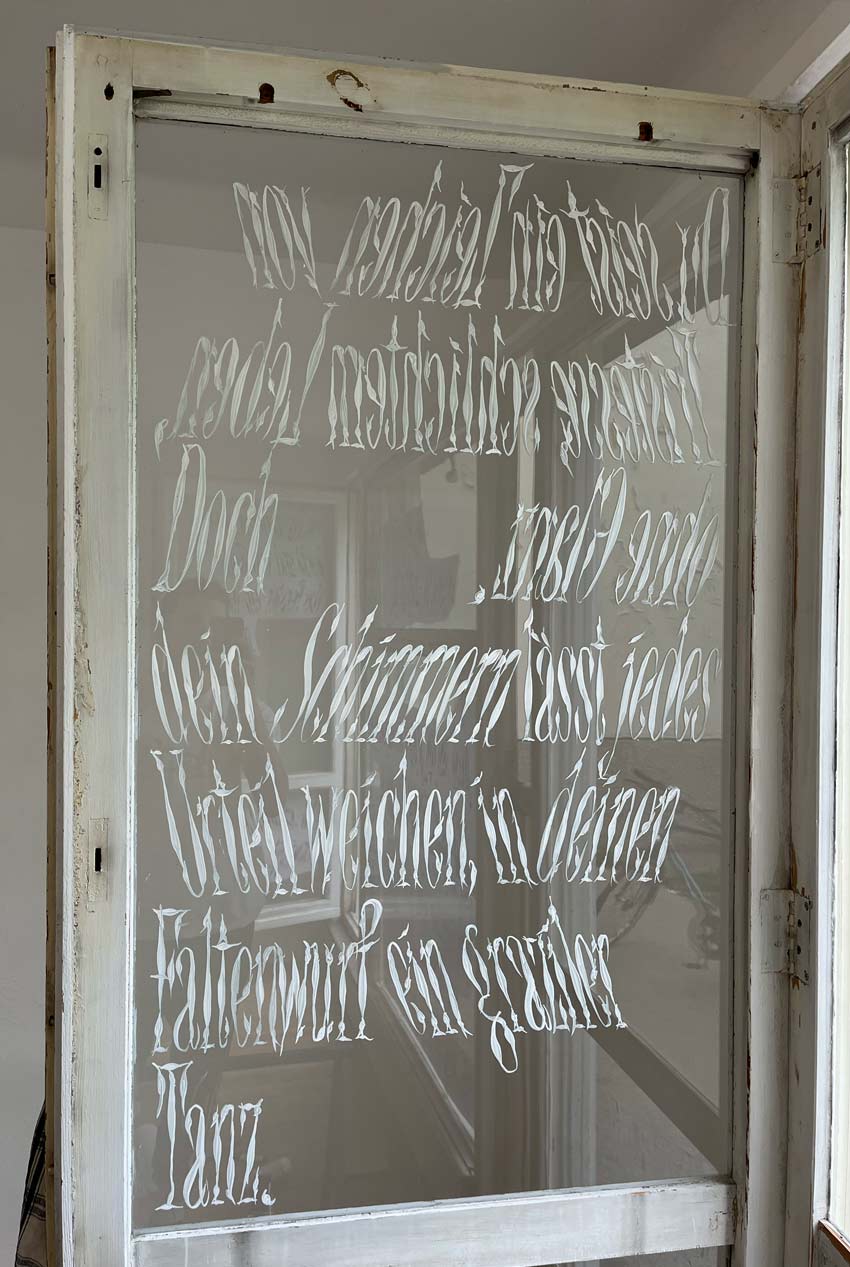 Du, seist ein Zeichen von
Tristesse, schlichtem Leben,
ohne Glanz. Doch
dein Schimmern lässt jedes
Urteil weichen, in deinen
Faltenwurf ein graziler
Tanz.